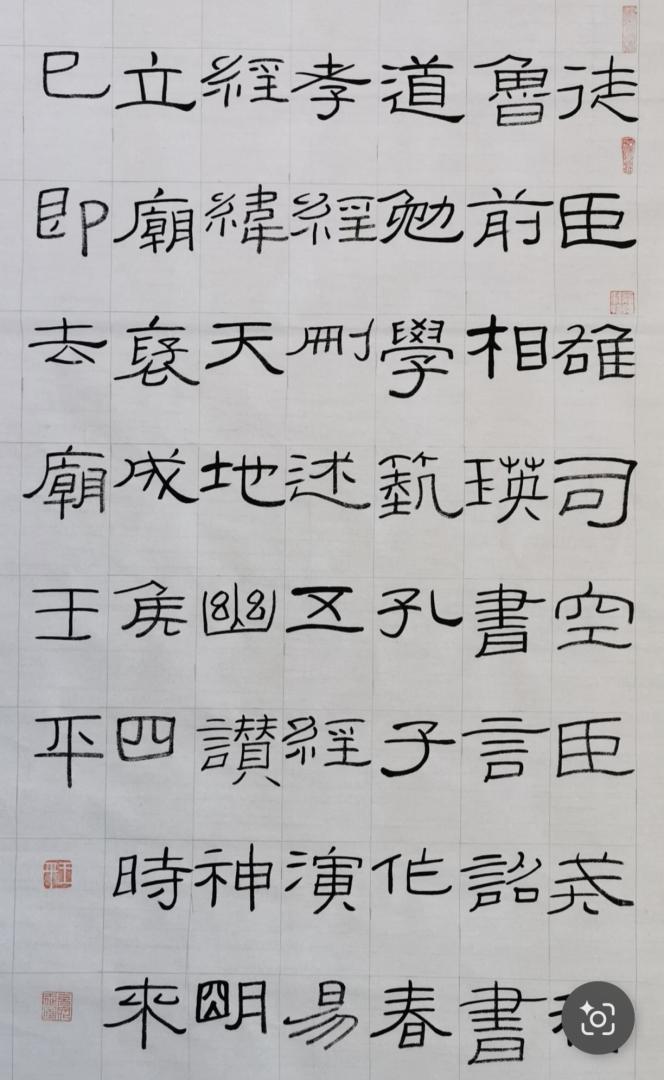 徒臣雄司空臣戒
魯前相瑛書言詔書
道勉學藝孔子作春
孝經刪述五經演易
經緯天地幽讚神明
立廟褒成侯四時來
已即去廟王平